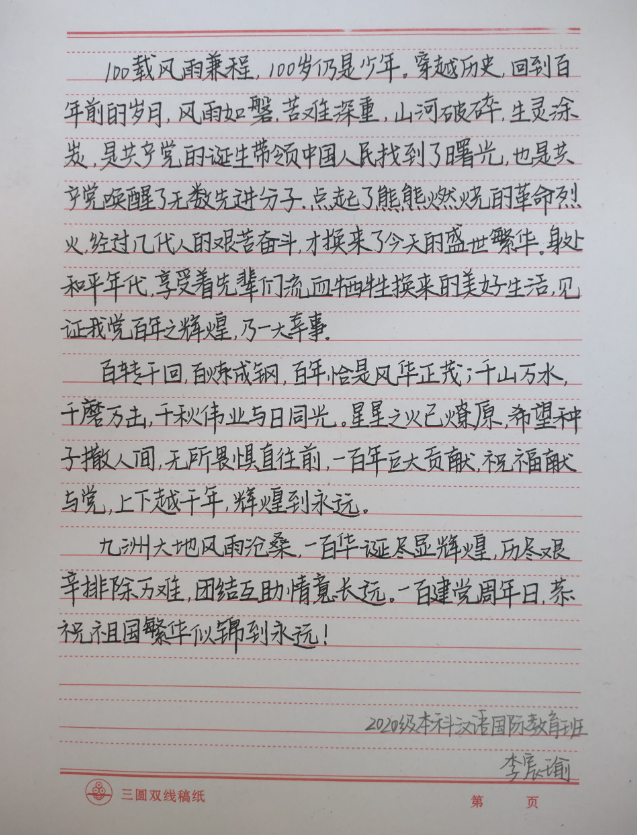 100载风雨兼程，100岁仍是少年。穿越历史，回到百
年前的岁月，风雨如磐，苦难深重，山河破碎，生灵涂
炭，是共产党的诞生带领中国人民找到了曙光，也是共
产党唤醒了无数先进分子、点起了熊熊燃烧的革命烈
火，经过几代人的艰苦奋斗，才换来了今天的盛世繁华。身处
和平年代，享受着先辈们流血牺牲换来的美好生活，见
证我党百年之辉煌，乃一大幸事。
百转千回，百炼成钢，百年恰是风华正茂；千山万水，
千磨万击，千秋伟业与日同光。星星之火已燎原，希望种
子撒人间，无所畏惧直往前，一百年巨大贡献，祝福献
与党，上下越千年，辉煌到永远。
九洲大地风雨沧桑，一百华诞尽显辉煌，历尽艰
辛排除万难，团结互助情意长远。一百建党周年日，恭
祝祖国繁华似锦到永远！
2020级本科汉语国际教育班
李宸瑜
三圆双线稿纸
第 页